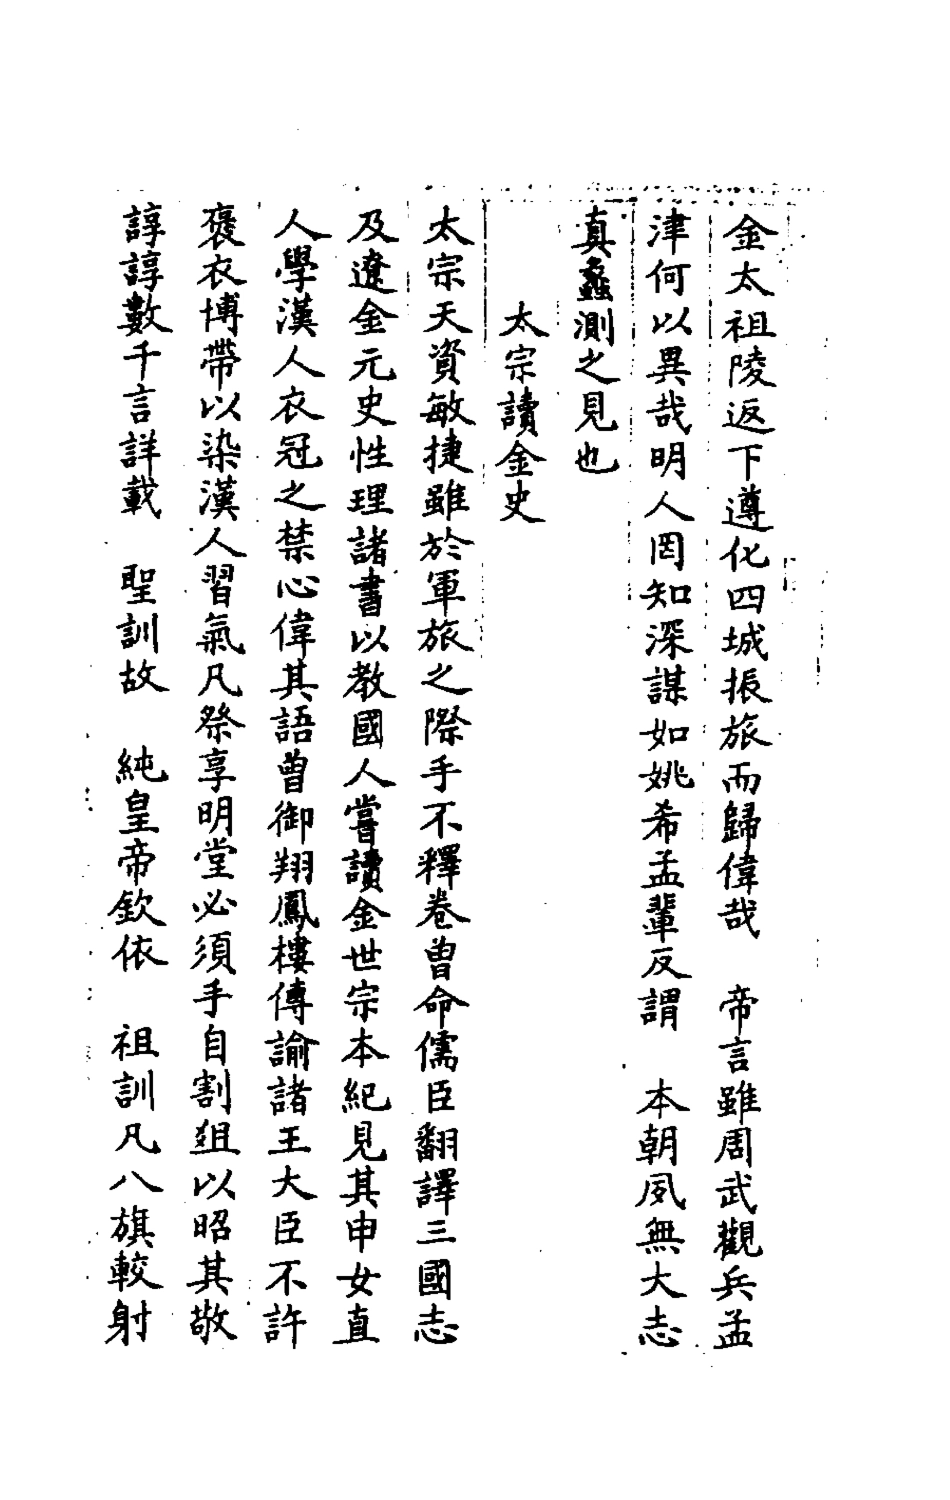 金太祖陵返下遵化四城振旅而歸偉哉　帝言雖周武觀兵孟
津何以異哉明人罔知深謀如姚希孟輩反謂　本朝夙無大志
真蠡測之見也
太宗讀金史
太宗天資敏捷雖於軍旅之際手不釋卷曾命儒臣翻譯三國志
及遼金元史性理諸書以教國人嘗讀金世宗本紀見其申女直
人學漢人衣冠之禁心偉其語曾御翔鳳樓傳諭諸王大臣不許
褒衣博帶以染漢人習氣凡祭享明堂必須手自割俎以昭其敬
諄諄數千言詳載　聖訓故　純皇帝欽依　祖訓凡八旗較射